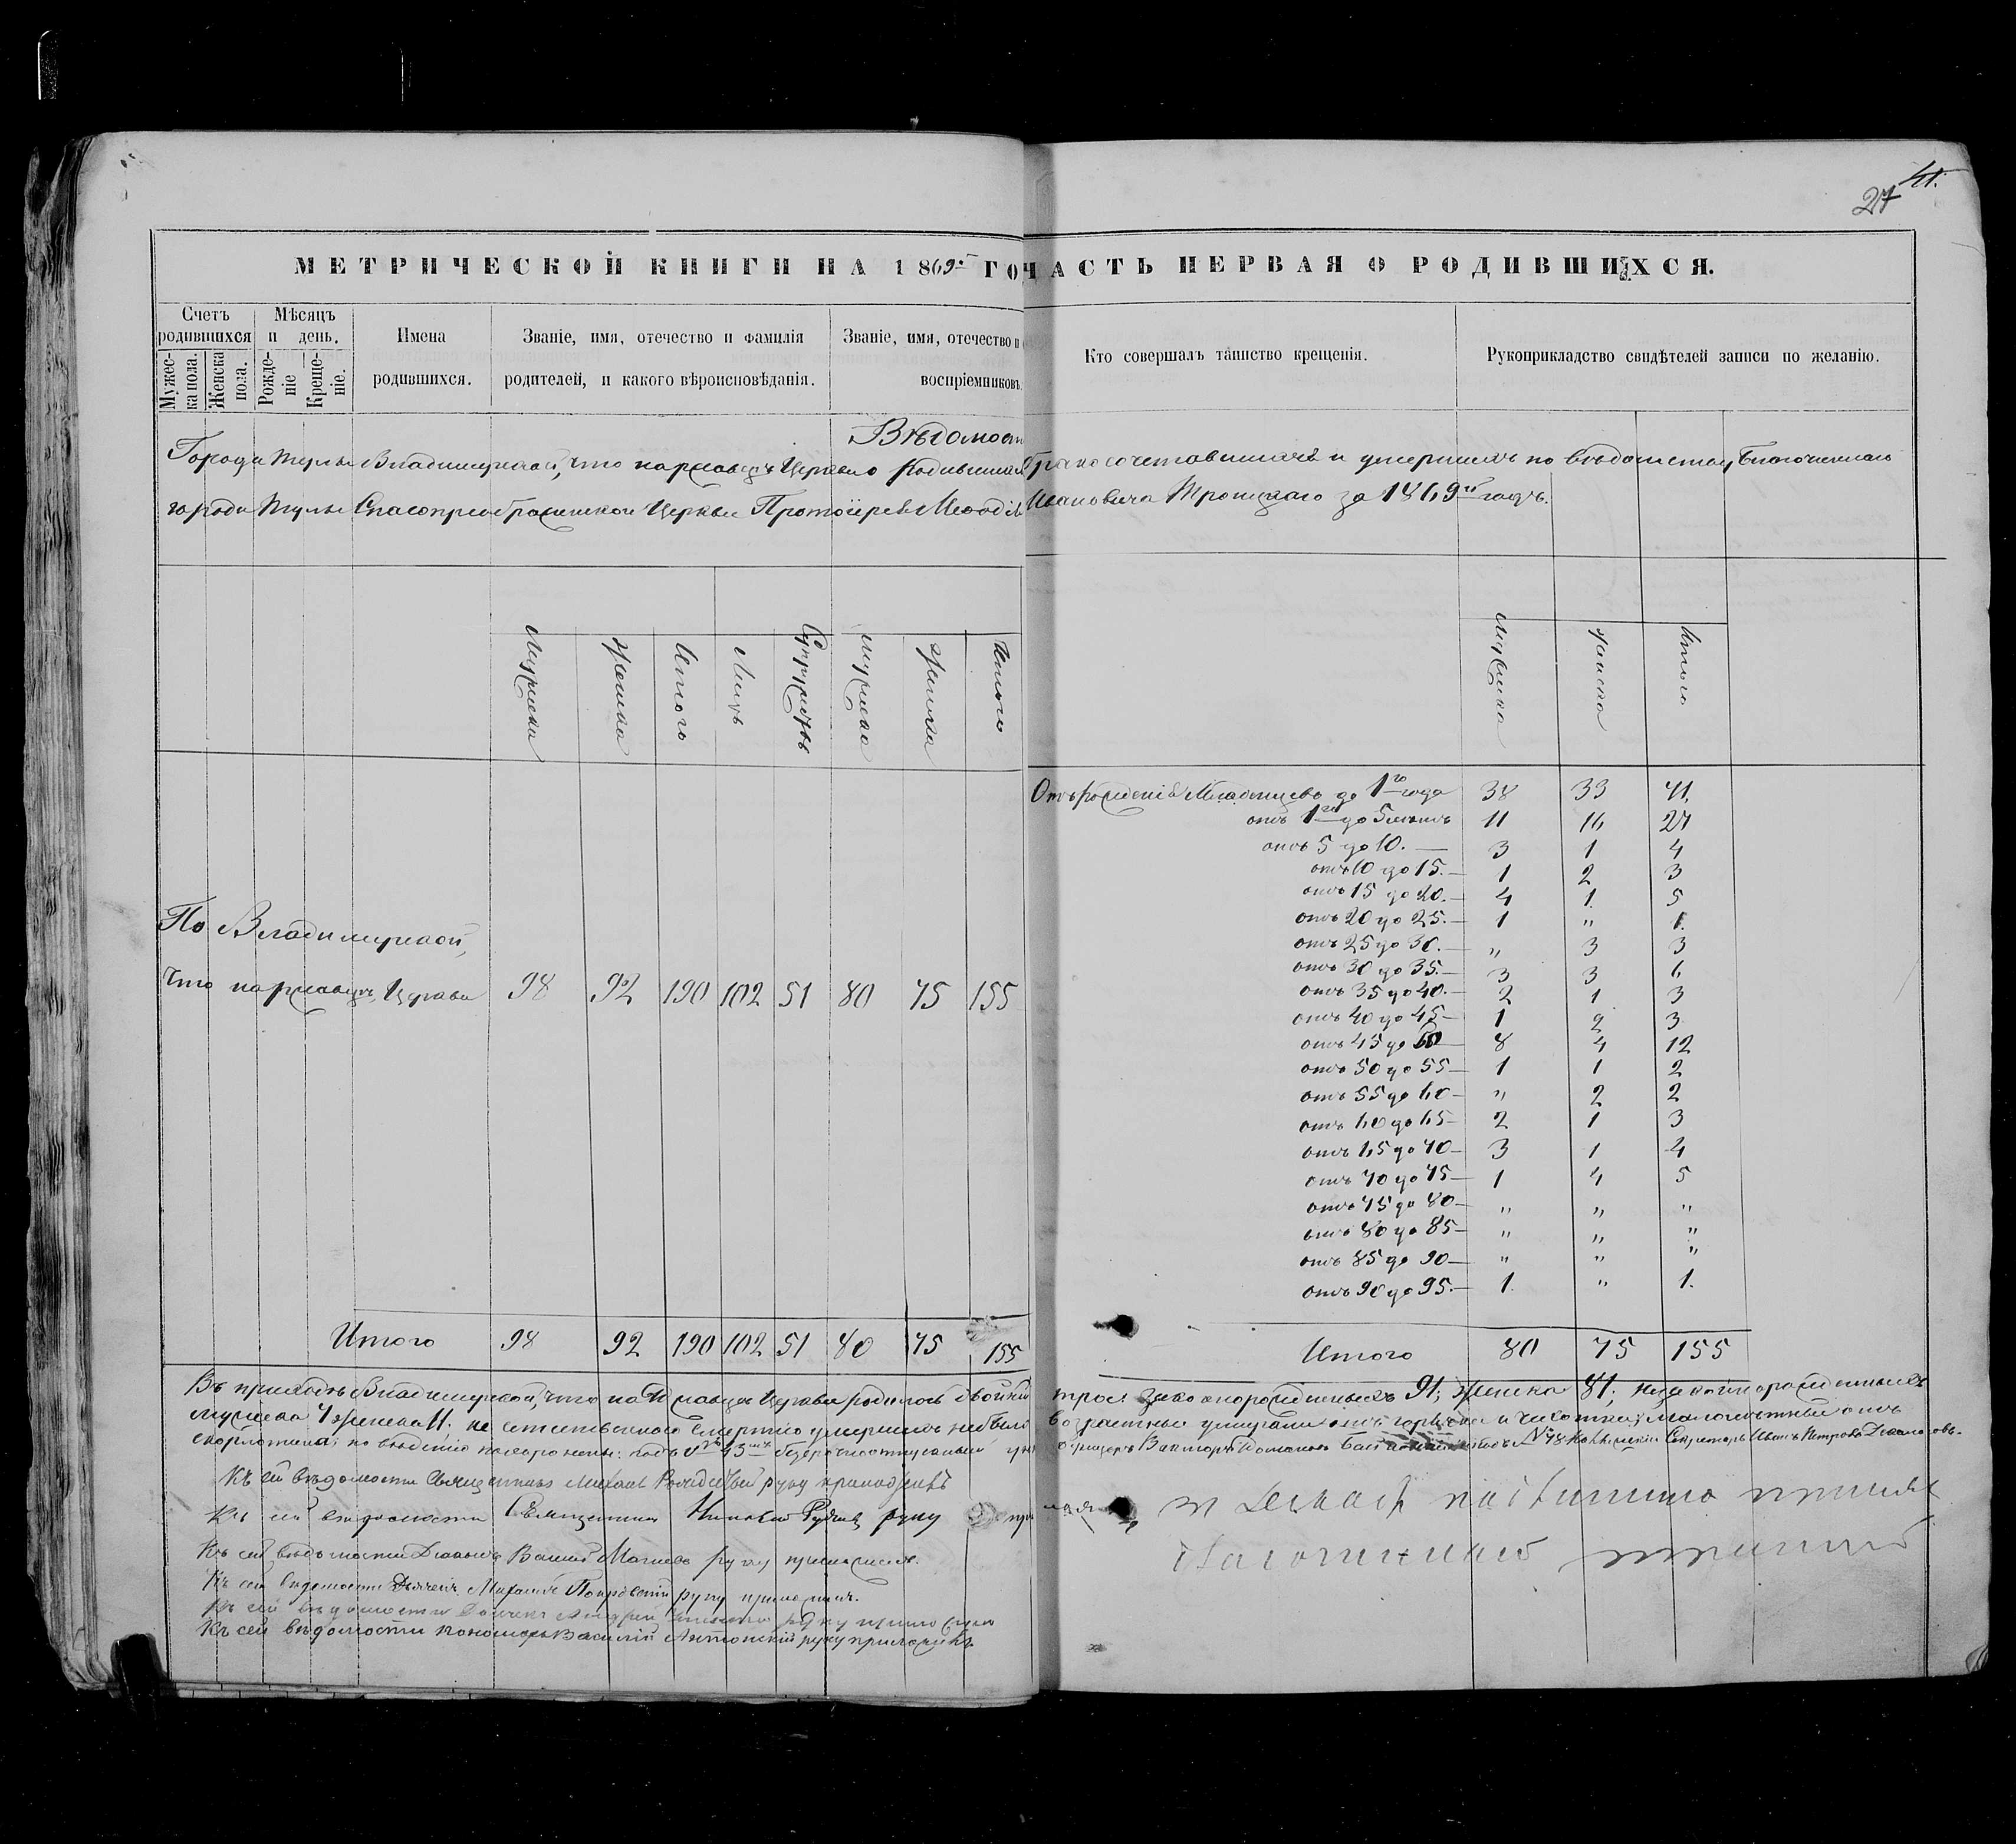 41.
27
МЕТРИЧЕСКОЙ КНИГИ НА 1869й ГО ЧАСТЬ ПЕРВАЯ О РОДИВШИХСЯ.
Счетъ родившихся
Мужеска пола.
Женска пола.
Мѣсяцъ и день.
Рожденіе
Крещеніе.
Имена родившихся.
Званіе, имя, отечество и фамилія родителей, и какого вѣроисповѣданія.
Званіе, имя, отечество и воспріемниковъ
Кто совершалъ таинство крещенія.
Рукоприкладство свидѣтелей записи по желанію.
Вѣдомость
Города Тулы Владимірской, что на Церкви о родившихся бракосочетавшихся и умершихъ по вѣдомству Благочиннаго
города Тулы Спасопреображенской Церкви Протоіерея Ивановича Троицкаго за 1869й годъ.
Мужеска
Женска
Итого
Лицъ
Супружествъ
Мужеска
Женска
Итого
Мужеска
Женска
Итого
По Владимірской,
что на Церкви 98 92 190 102 51 80 75 155
Отъ рожденія Младенцевъ до 1го года 38 33 71.
отъ 1го до 5 лѣтъ 11 16 27
отъ 5 до 10. — 3 1 4
отъ 10 до 15. — 1 2 3
отъ 15 до 20. — 4 1. 5
отъ 20 до 25. — 1 " 1.
отъ 25 до 30. — " 3 3
отъ 30 до 35. — 3 3 6
отъ 35 до 40. — 2 1 3
отъ 40 до 45 — 1 2 3
отъ 45 до 50 — 8 4 12
отъ 50 до 55 — 1 1 2
отъ 55 до 60 — " 2 2
отъ 60 до 65 — 2 1 3
отъ 65 до 70 — 3 1 4
отъ 70 до 75 — 1 4 5
отъ 75 до 80 — " " "
отъ 80 до 85 — " " "
отъ 85 до 90 — " " "
отъ 90 до 95. — 1. " 1.
Итого 98 92 190 102 51 80 75 155
Итого 80 75 155
Въ приходѣ Владимірской, что на Церкви родилось двойни законорожденныхъ 91; женска 81; незаконнорожденныхъ
мужеска 7 женска 11. не естественною смертію умершихъ не было возрастные умирали отъ горячки и чахотки; малолѣтные отъ
скарлатины; по вѣденію похоронены: подъ № 43 Викторъ подъ № 78 Коллежскій Секретарь Иванъ Петровъ
Къ сей вѣдомости Священникъ Михаилъ руку приложилъ
Къ сей вѣдомости Священникъ Николай руку
Къ сей вѣдомости Діаконъ Василій руку приложилъ.
Къ сей вѣдомости Дьячекъ Михаилъ Покровскій руку приложилъ.
Къ сей вѣдомости Дьячекъ Андрей руку приложилъ
Къ сей вѣдомости пономарь Василій руку приложилъ